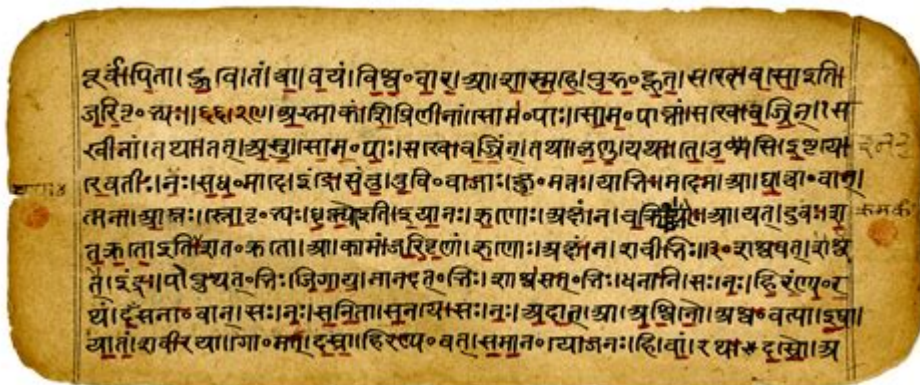 पूर्वं।पिता।हुवे।तं।त्वा।वयं।विश्व॰वार।आ।शास्महे।पुरु॰हूत।सखे।वसो इति।
जरितृ॰भ्यः॥२९।अस्माकं।शिप्रिणीनां।सोम॰पाः।सोम॰पाव्नां।सखे।वज्रिन्।स
खीनां।तथा।तत्।अस्तु।सोम॰पाः।सखे।वज्रिन्।तथा।कृणु।यथा।ते।उश्मसि।इष्टये।
रेवतीः।नः।सध॰मादे।इंद्रे।संतु।तुवि॰वाजाः।क्षु॰मंतः।याभिः।मदेम।आ।घ।त्वा॰वान्।
त्मना।आप्तः।स्तोतृ॰भ्यः।धृष्णो इति।इयानः।ऋणोः।अक्षं।न।चक्र्योः।आ।यत्।दुवः।श
तक्रतो इति शत॰क्रतो।आ।कामं।जरितॄणां।ऋणोः।अक्षं।न।शचीभिः॥३०
ते।इंद्रः।पोप्रुथत्॰भिः।जिगाय।नानदत्॰भिः।शाश्वसत्॰भिः।धनानि।सः।नः।हिरण्य॰र
थं।दंसना॰वान्।सः।नः।सनिता।सनये।सः।नः।अदात्।आ।अश्विनौ।अश्व॰वत्या।इषा।
यातं।शवीरया।गो॰मत्।दस्रा।हिरण्य॰वत्।समान॰योजनः।हि।वां।रथः।दस्रौ।अ